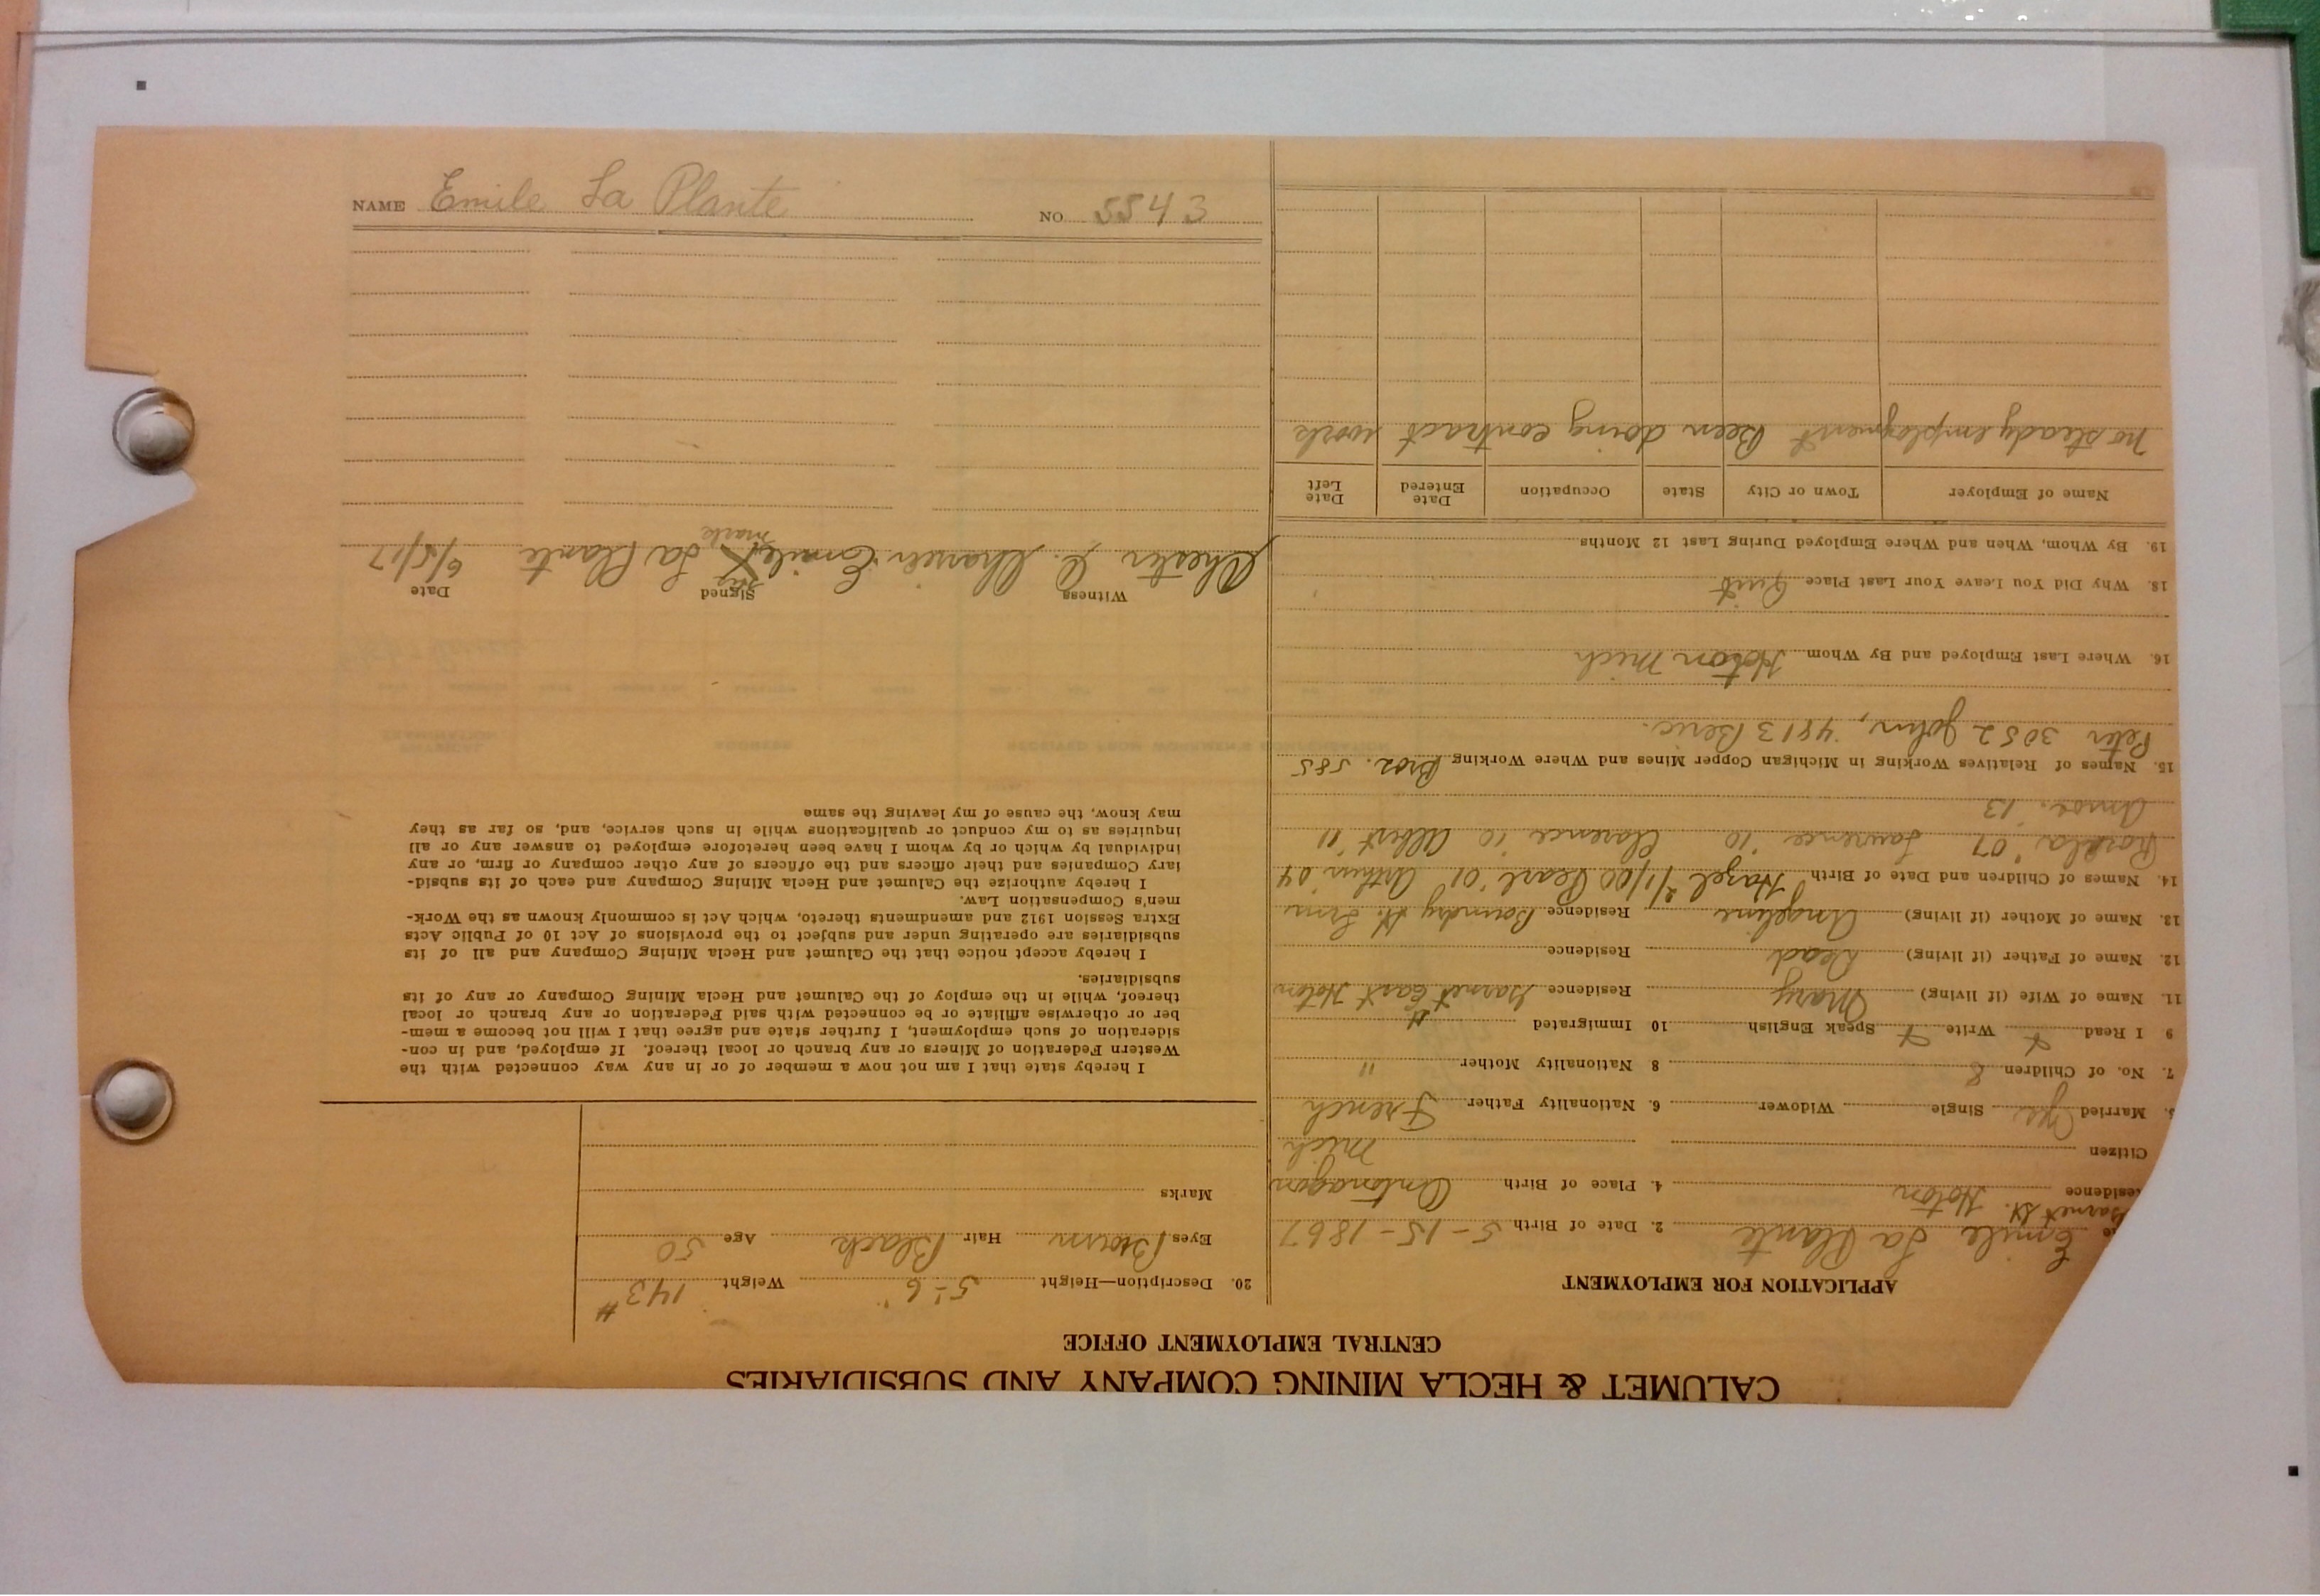 CALUMET & HECLA MINING COMPANY AND SUBSIDIARIES
CENTRAL EMPLOYMENT OFFICE
APPLICATION FOR EMPLOYMENT
Emile La Plante 2. Date of Birth 5-15-1867
Garnet St.
Residence Hoton 4. Place of Birth Ontonagon
Mich
Citizen
Married Yes Single Widower 6. Nationality Father French
7. No. of Children 8 8 Nationality Mother "
9 I Read Write Speak English 10 Immigrated
11. Name of Wife (if living) Mary Residence Garnet East Hoton
12. Name of Father (if living) Dead Residence
13. Name of Mother (if living) Angeline Residence Boundry St.
14. Names of Children and Date of Birth Hazel 2/1/00 Pearl '01 Arthur '04
'07 Lawrence '10 Clarence '10 Albert '11
'13
15. Names of Relatives Working in Michigan Copper Mines and Where Working Bros. 585
Peter 3052 John, 4813
16. Where Last Employed and By Whom Hoton Mich
18. Why Did You Leave Your Last Place Quit
19. By Whom, When and Where Employed During Last 12 Months
Name of Employer Town or City State Occupation Date Entered Date Left
No steady employment Been doing contract work
20. Description—Height 5'-6" Weight 143 #
Eyes Brown Hair Black Age 50
Marks
I hereby state that I am not now a member of or in any way connected with the
Western Federation of Miners or any branch or local thereof. If employed, and in con-
sideration of such employment, I further state and agree that I will not become a mem-
ber or otherwise affiliate or be connected with said Federation or any branch or local
thereof, while in the employ of the Calumet and Hecla Mining Company or any of its
subsidiaries.
I hereby accept notice that the Calumet and Hecla Mining Company and all of its
subsidiaries are operating under and subject to the provisions of Act 10 of Public Acts
Extra Session 1912 and amendments thereto, which Act is commonly known as the Work-
men's Compensation Law.
I hereby authorize the Calumet and Hecla Mining Company and each of its subsid-
iary Companies and their officers and the officers of any other company or firm, or any
individual by which or by whom I have been heretofore employed to answer any or all
inquiries as to my conduct or qualifications while in such service, and, so far as they
may know, the cause of my leaving the same
Witness Signed Date
his
Chester Emile X La Plante 6/5/17
mark
NAME Emile La Plante NO. 5543